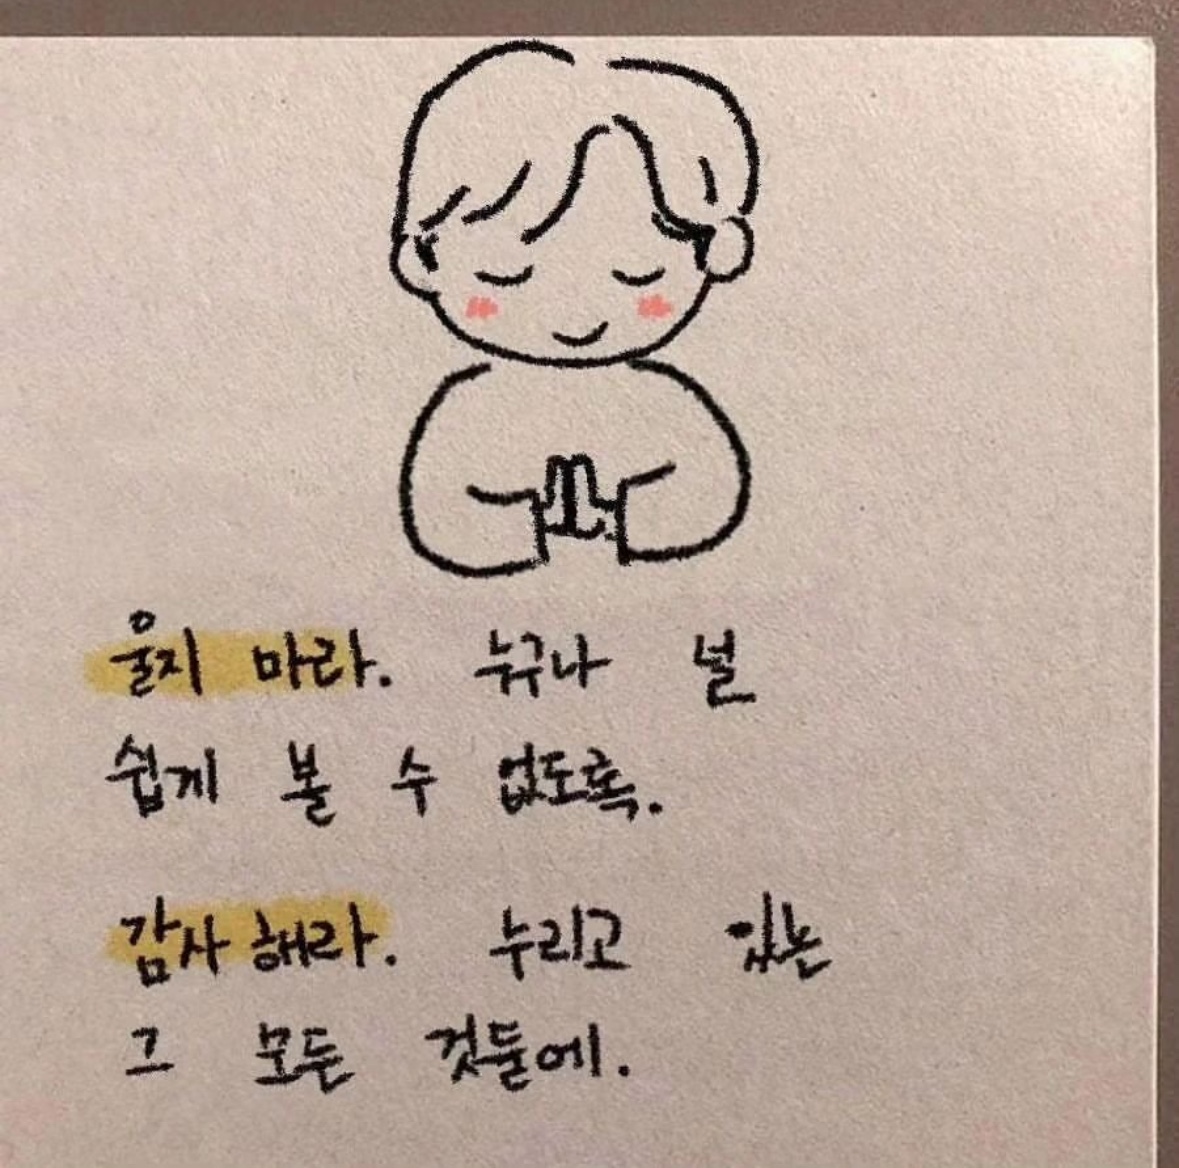 울지 마라. 누구나 널
쉽게 볼 수 없도록.
감사해라. 누리고 있는
그 모든 것들에.